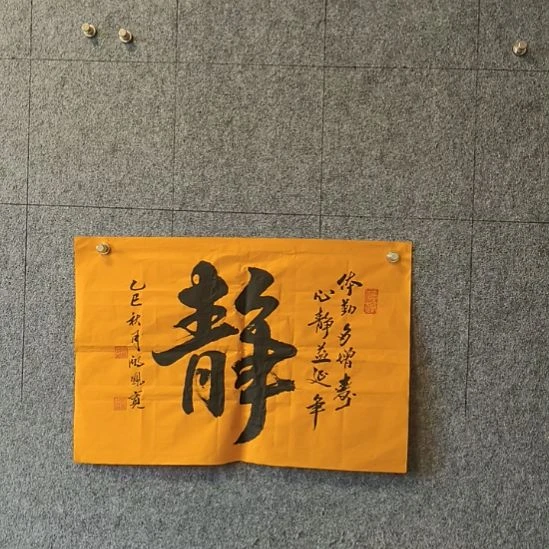 体勤多增寿
心静益延年
静
乙巳秋月